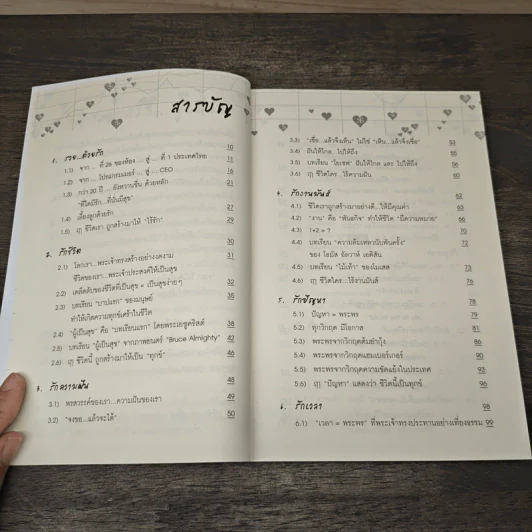 สารบัญ
10
1. รวย...ด้วยรัก 11
1.1) จาก ... ที่ 28 ของห้อง ... สู่ ... ที่ 1 ประเทศไทย
1.2) จาก ... โปรแกรมเมอร์ ... สู่ ... CEO 16
1.3) กว่า 20 ปี ... อังหวานชื่น ด้วยหลัก 21
"ที่ใดมีรัก...ที่นั่นมีสุข"
1.4) เลี้ยงลูกด้วยรัก 27
1.5) ฤๅ ชีวิตเรา ถูกสร้างมาให้ "ไร้รัก" 29
2. รักชีวิต 30
2.1) โลกเรา...พระเจ้าทรงสร้างอย่างงดงาม 31
ชีวิตของเรา...พระเจ้าประสงค์ให้เป็นสุข
2.2) เคล็ดลับของชีวิตที่เป็นสุข = เป็นสุขง่ายๆ 32
2.3) บทเรียน "บาปแรก" ของมนุษย์ 35
ทำให้เกิดความทุกข์เศร้าในชีวิต
2.4) "ผู้เป็นสุข" คือ "บทเรียนแรก" โดยพระเยซูคริสต์ 38
2.5) บทเรียน "ผู้เป็นสุข" จากภาพยนตร์ "Bruce Almighty" 42
2.6) ฤๅ ชีวิตนี้ ถูกสร้างมาให้เป็น "ทุกข์" 46
3. รักความฝัน 48
3.1) พรสวรรค์ของเรา...ความฝันของเรา 49
3.2) "จงขอ...แล้วจะได้" 50
3.3) "เชื่อ...แล้วจึงเห็น" ไม่ใช่ "เห็น...แล้วจึงเชื่อ" 53
3.4) ฝันให้ไกล...ไปให้ถึง 55
3.5) บทเรียน "โยเซฟ" ฝันให้ไกล และ ไปให้ถึง 56
3.6) ฤๅ ชีวิตใคร...ไร้ความฝัน 60
4. รักงานพันธ์ 62
4.1) ชีวิตเราถูกสร้างมาอย่างดี...ให้มีคุณค่า 63
4.2) "งาน" คือ "พันธกิจ" ทำให้ชีวิต "มีความหมาย" 66
4.3) 1+2 = ? 70
4.4) บทเรียน "ความล้มเหลวนับพันครั้ง" 72
ของ โธมัส อัลวาห์ เอดิสัน
4.5) บทเรียน "ไม้เท้า" ของโมเสส 73
4.6) ฤๅ ชีวิตใคร...ไร้งานพันธ์ 76
5. รักปัญหา 78
5.1) ปัญหา = พระพร 79
5.2) ทุกวิกฤต มีโอกาส 81
5.3) พระพรจากวิกฤตต้มยำกุ้ง 86
5.4) พระพรจากวิกฤตแฮมเบอร์เกอร์ 90
5.5) พระพรจากวิกฤตความขัดแย้งในประเทศ 93
5.6) ฤๅ "ปัญหา" แสดงว่า ชีวิตนี้เป็นทุกข์ 96
6. รักเวลา 98
6.1) "เวลา = พระพร" ที่พระเจ้าทรงประทานอย่างเที่ยงธรรม 99